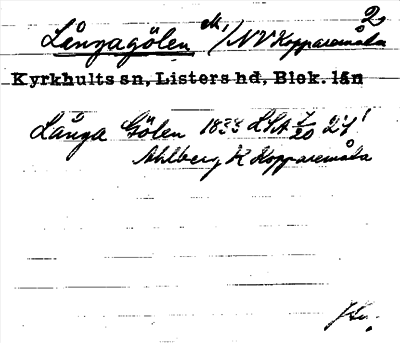 2
Långagölen /NV Kopparemåla
Kyrkhults sn, Listers hd, Blek. län
Långa Gölen 1833 LSA 7/20 2'1'
Ahlberg K Kopparemåla